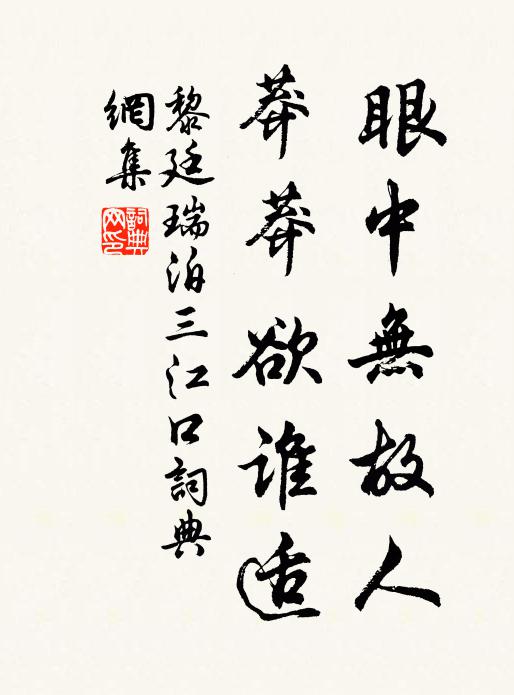 眼中無故人
莽莽欲誰适
黎廷瑞泊三江口詞典
網集
詞典网印